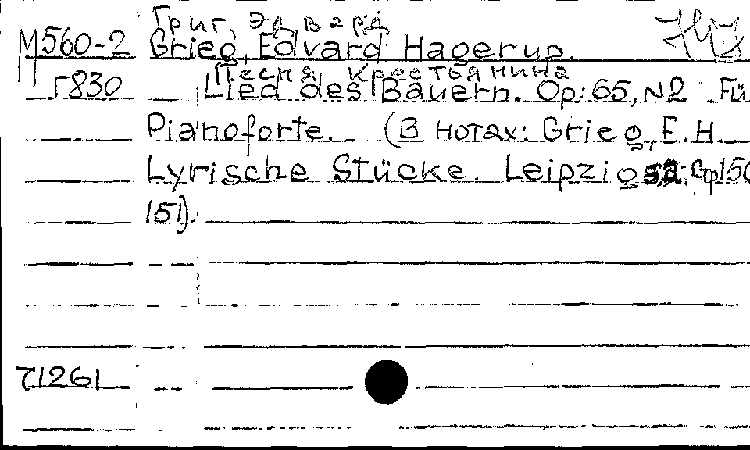 Григ, Эдвард
М560-2 Grieg, Edvard Hagerup.
Песня крестьянина
Г830 Lied des Bauern. Op: 65, N2 Fü
Pianoforte. (В нотах: Grieg, E.H.
Lyrische Stücke. Leipzig, s.a. Cp150
151).
71261